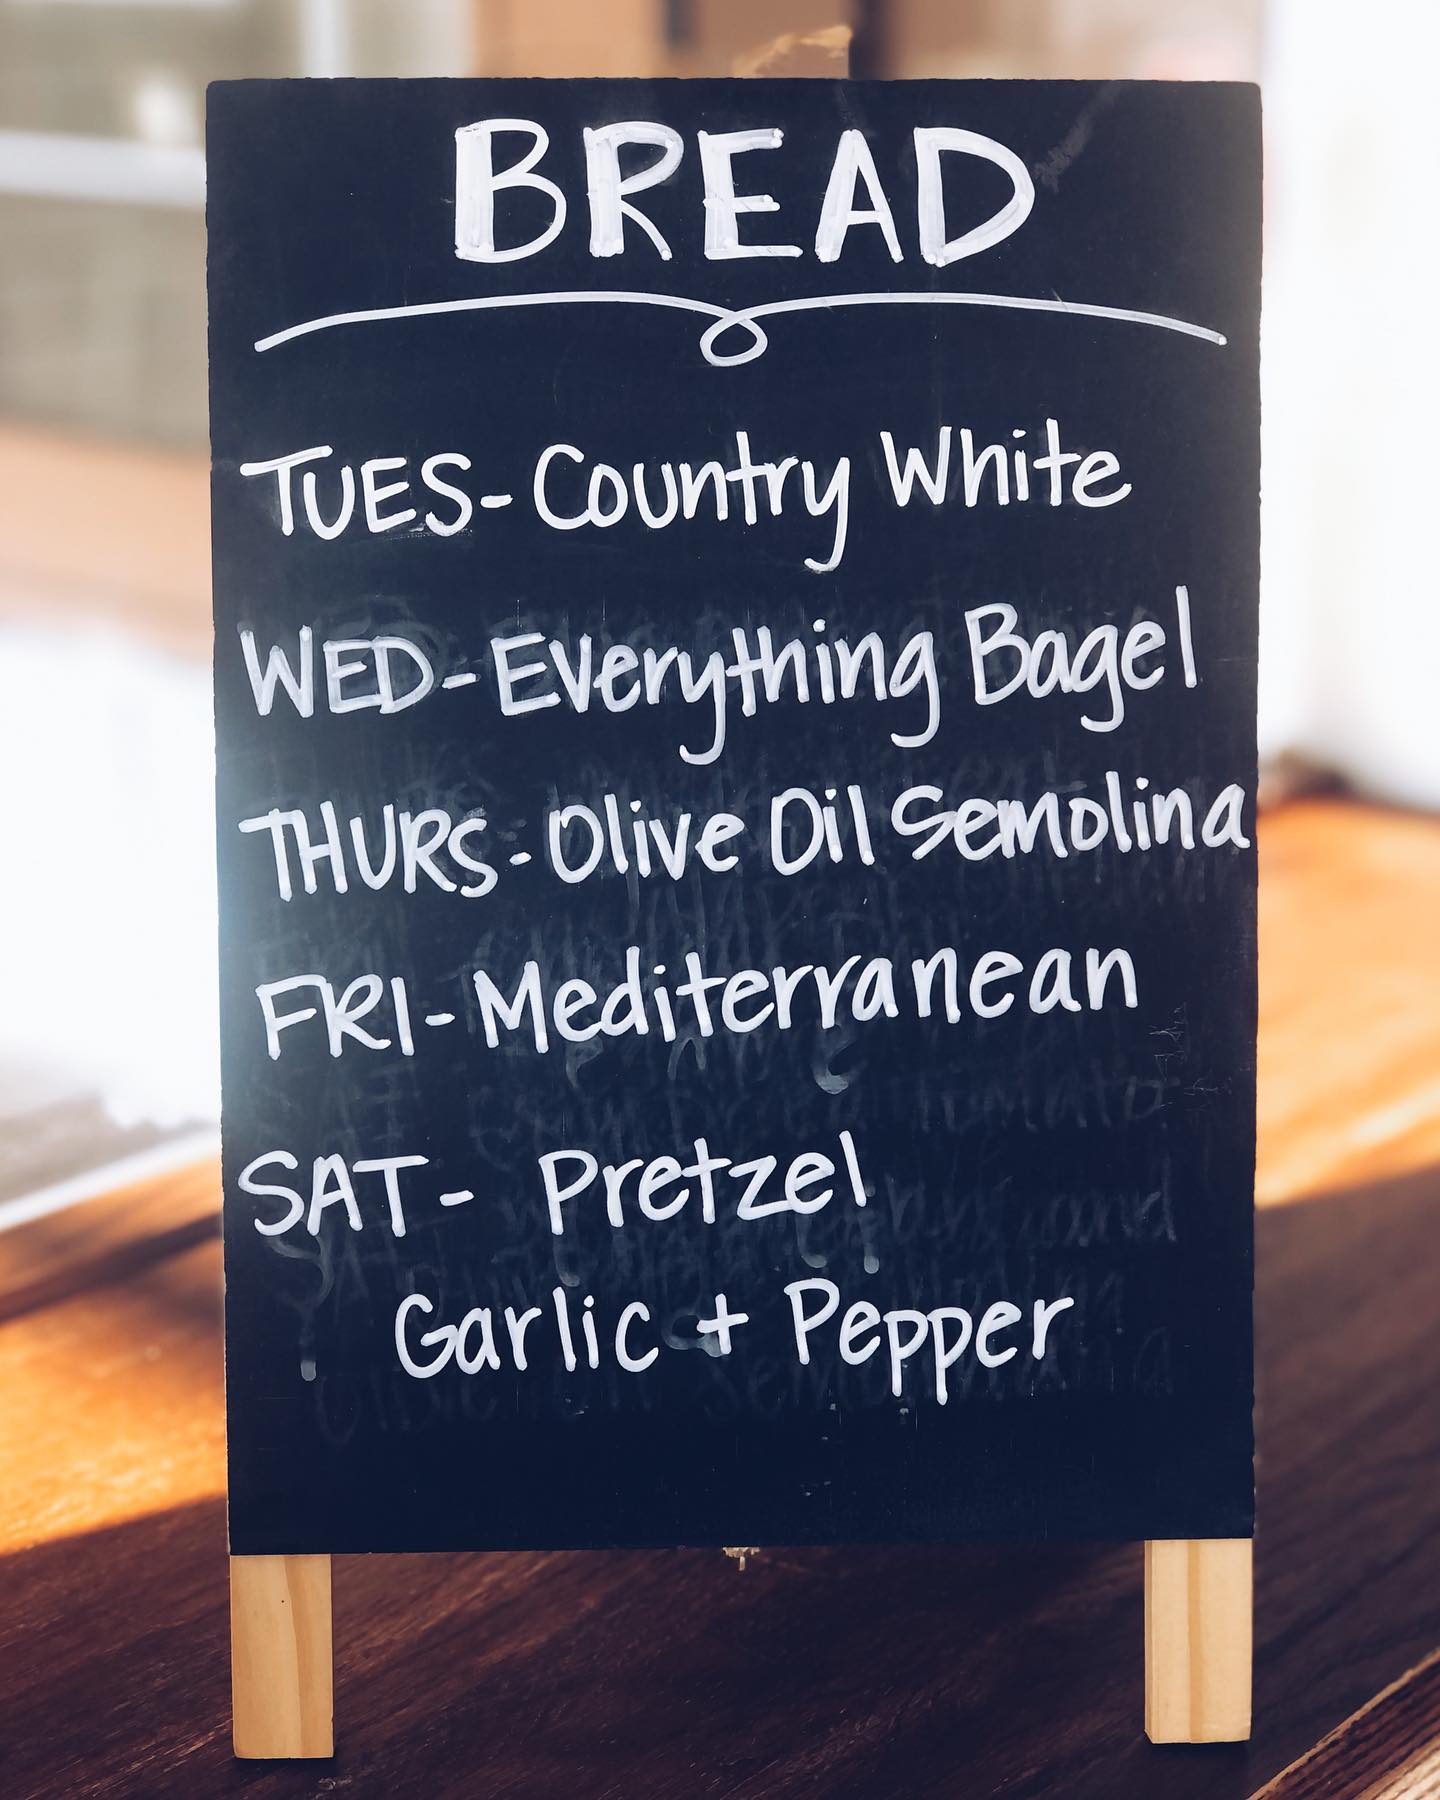 BREAD
TUES- Country White
WED- Everything Bagel
THURS- Olive Oil Semolina
FRI- Mediterranean
SAT- Pretzel
Garlic + Pepper